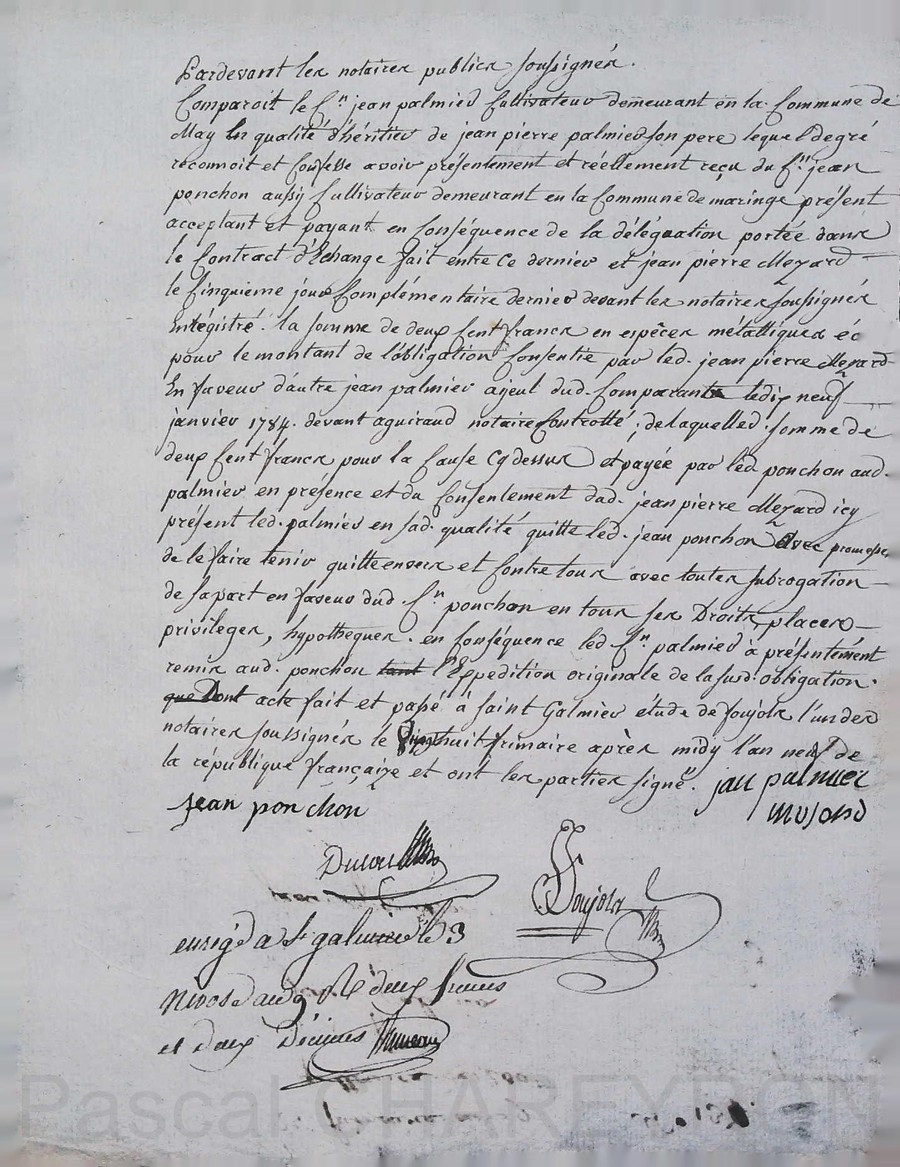 Pardevant les notaires publics soussignés.
Comparoit le C.en jean palmier Cultivateur demeurant en la Commune de
May En qualité d'héritier de jean pierre palmier son pere lequel de gré
reconnoit et Confesse avoir présentement et réellement reçu du C.en jean
ponchon aussy Cultivateur demeurant en la Commune de maringe présent
acceptant et payant en Conséquence de la délégation portée dans
le Contract d'Echange fait entre Ce dernier et jean pierre Meyard
le Cinquieme jour Complémentaire dernier devant les notaires soussignés
Enrégistré. la somme de deux Cent francs en espêces métalliques &c
pour le montant de l'obligation Consentie par led. jean pierre Meyard
En faveur d'autre jean palmier ajeul dud. Comparant le dix neuf
janvier 1784. devant aguiraud notaire Controllé; de laquelle d. somme de
deux Cent francs pour la Cause Cy dessus et payée par led ponchon aud.
palmier en présence et du Consentement dud. jean pierre Meyard icy
présent led. palmier en sad. qualité quitte led. jean ponchon Avec promesse
de le faire tenir quitte envers et Contre tous avec toutes subrogation
de sa part en faveur dud C.en ponchon en tous ses Droits, places
privileges, hypotheques. en Conséquence led. C.en palmier à présentement
remis aud. ponchon tant l'Expédition originale de la susd. obligation.
que Dont acte fait et passé à saint Galmier étude de soujols l'un des
notaires soussignés le huit frimaire après midy l'an neuf de
la république française et ont les parties signé. jan palmier
jean ponchon
Soujols
enrég.é a St galmier le 3
Nivose an 9 R deux francs
et deux Décimes
Pascal CHAREYRON